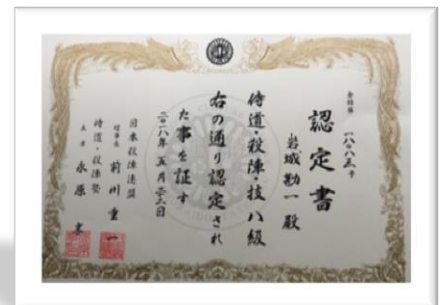 認定書
岩城勘一殿
侍道・殺陣・技八級
右の通り認定され
た事を証す
二〇一八年五月二三日
日本殺陣連盟
理事長 前川重一
侍道・殺陣塾
主宰 永原